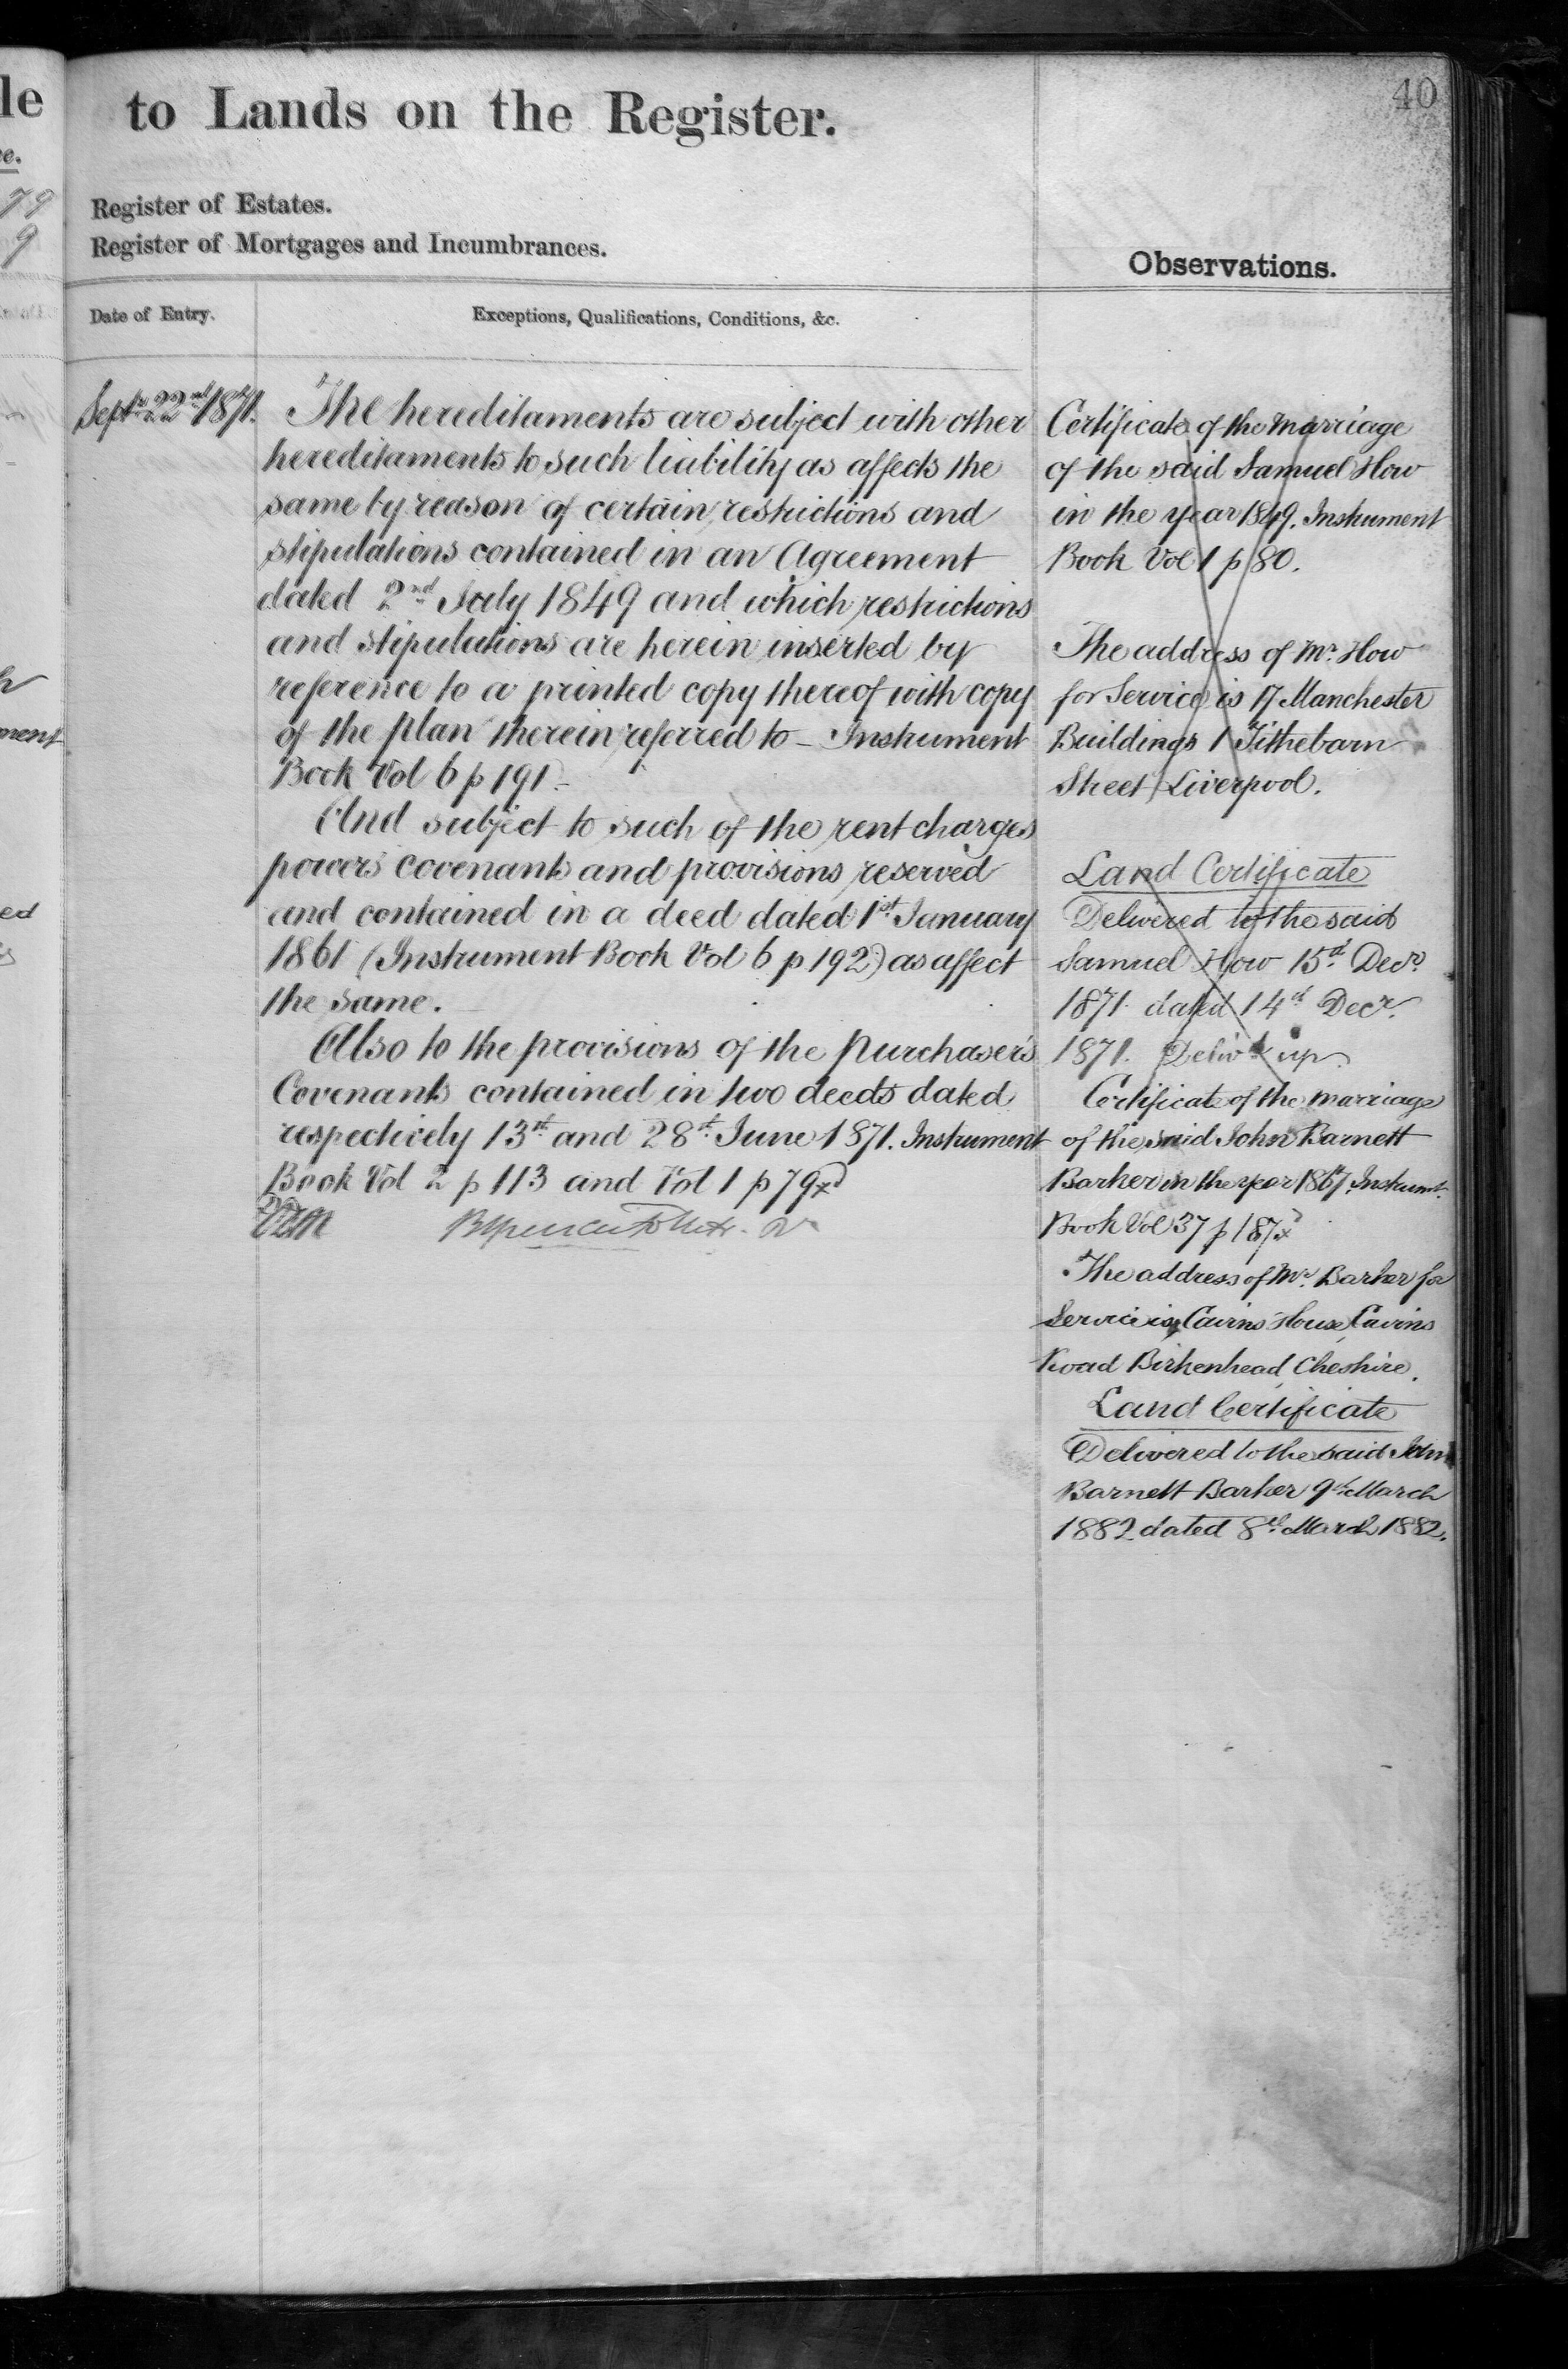 40
to Lands on the Register.
Register of Estates.
Register of Mortgages and Incumbrances.
Observations.
Date of Entry.
Exceptions, Qualifications, Conditions, &c.
Septr. 22nd 1871.
The hereditaments are subject with other
hereditaments to such liability as affects the
same by reason of certain restrictions and
stipulations contained in an Agreement
dated 2nd July 1849 and which restrictions
and stipulations are herein inserted by
reference to a printed copy thereof with copy
of the plan therein referred to – Instrument
Book Vol 6 p 191.–
And subject to such of the rent charges
powers covenants and provisions reserved
and contained in a deed dated 1st January
1861 (Instrument Book Vol 6 p 192) as affect
the same.
Also to the provisions of the Purchaser's
Covenants contained in two deeds dated
respectively 13th and 28th June 1871. Instrument
Book Vol 2 p 113 and Vol 1 p 79
Certificate of the marriage
of the said Samuel How
in the year 1849. Instrument
Book Vol 1 p 80.
The address of Mr. How
for Service is 17 Manchester
Buildings 1 Tithebarn
Street Liverpool.
Land Certificate
Delivered to the said
Samuel How 15th Decr.
1871 dated 14th Decr.
1871. Delivd. up.
Certificate of the marriage
of the said John Barnett
Barker in the year 1867. Instrumt.
Book Vol 37 p 187
The address of Mr. Barker for
Service is Cairns House Cairns
Road Birkenhead Cheshire.
Land Certificate
Delivered to the said John
Barnett Barker 9th March
1882 dated 8th March 1882.